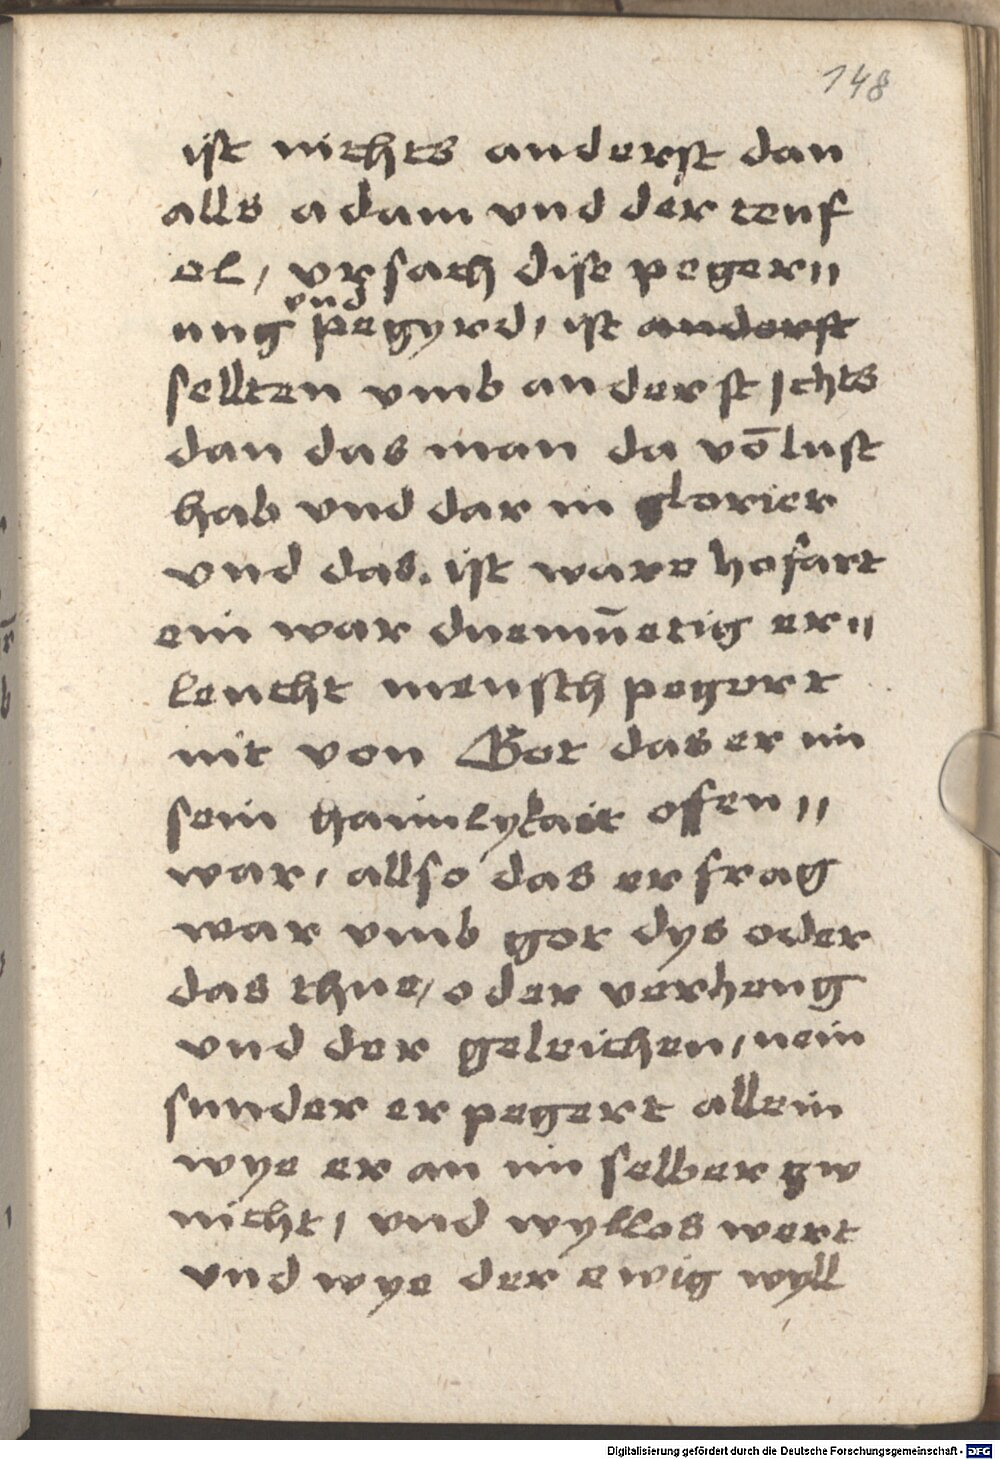 148
ist nichts anderst dan
alls adam und der teuf
el, ursach dise peger=
ung und pegyrd, ist anderst
sellten umb anderst ichts
dan das man da vō lust
hab und dar in glorier
und das. ist ware hofart
ein war duemūetig er=
leucht mensch pegert
nit von Got das er im
sein haimlykait offen=
war, allso das er frag
war umb got dys oder
das thue, oder verheng
und der geleichen, nein
sunder er pegert allein
wye er an im selber zw
nicht, und wyllos wert
und wye der ewig wyll
Digitalisierung gefördert durch die Deutsche Forschungsgemeinschaft - DFG